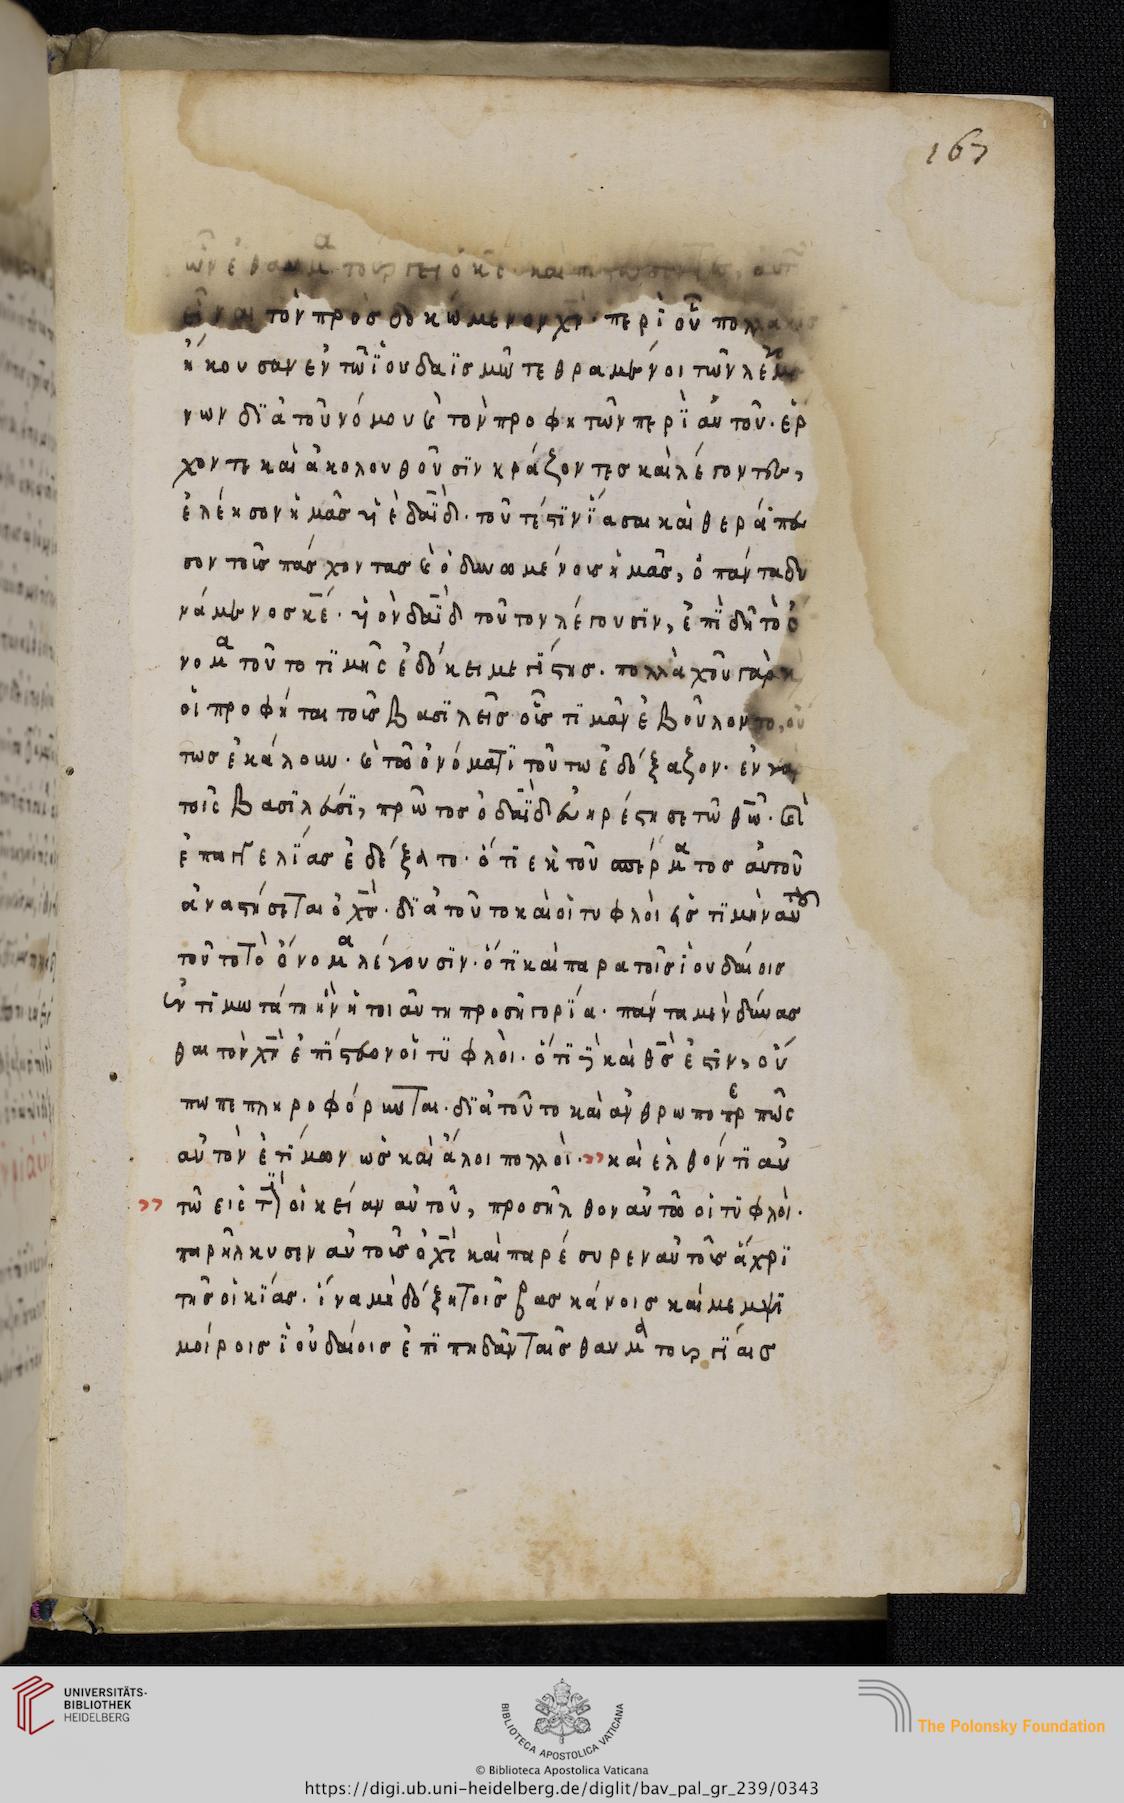 167
ὧν ἐθαυμα τούργει ὁ κς καὶ
εἶναι τὸν προσδοκώμενον χν· περὶ οὗ πολλάκις
ἤκουσαν ἐν τῶ ἰουδαϊσμῶ τεθραμμένοι τῶν λεγομέ
νων διὰ τοῦ νόμου καὶ τὸν προφητῶν περὶ αὐτοῦ· ἔρ
χονται καὶ ἀκολουθοῦσιν κράζοντες καὶ λέγοντες,
ἐλέησον ἡμᾶς υἱὲ δαδ· τοῦτέστιν ἴασαι καὶ θεράπευ
σον τοὺς πάσχοντας καὶ ὀδυνωμένους ἡμᾶς, ὁ πάντα δυ
νάμενος κέ· υἱὸν δαδ τοῦτον λέγουσιν, ἐπιδὴ τὸ ὄ
νομα τοῦτο τιμῆς ἐδόκει μεγίστης· πολλὰχοῦ γὰρ κ
οἱ προφήται τοὺς βασιλεῖς οὓς τιμᾶν ἐβούλοντο, οὕ
τως ἐκάλουν· καὶ τῶ ὀνόματι τούτω ἐδόξαζον· ἐν γὰρ
τοῖς βασιλεύσι, πρῶτος ὁ δαδ εὐηρέστησε τῶ θω· καὶ
ἐπαγγελίας ἐδέξατο· ὅτι ἐκ τοῦ σπέρματος αὐτοῦ
ἀναστήσεται ὁ χς· διὰ τοῦτο καὶ οἱ τυφλοὶ εἰς τιμὴν αὐτοῦ
τοῦτο τὸ ὄνομα λέγουσιν· ὅτι καὶ παρα τοῖς ἰουδαίοις
ἐντιμωτάτη ἦν ἡ τοιαύτη προσηγορία· πάντα μὲν δύνασ
θαι τὸν χν ἐπίστευον οἱ τυφλοὶ· ὅτι δὲ καὶ θς ἐστιν, οὔ
πω πεπληροφόρηνται· διὰ τοῦτο καὶ ἀνθρωποπρεπῶς
αὐτὸν ἐτίμων ὡς καὶ ἄλοι πολλοὶ· ,, καὶ ἐλθόντι αὐ
,, τῶ εἰς τὴν οἰκείαν αὐτοῦ, προσῆλθον αὐτῶ οἱ τυφλοὶ·
παρήλκυσεν αὐτοὺς ὁ χς καὶ παρέσυρεν αὐτοὺς ἄχρι
τῆς οἰκίας· ἵνα μὴ δόξη τοῖς βασκάνοις καὶ μεμψι
μοίροις ἰουδαίοις ἐπιπηδᾶν ταῖς θαυματουργίαις
UNIVERSITÄTS-
BIBLIOTHEK
HEIDELBERG
BIBLIOTECA APOSTOLICA VATICANA
The Polonsky Foundation
© Biblioteca Apostolica Vaticana
https://digi.ub.uni-heidelberg.de/diglit/bav_pal_gr_239/0343